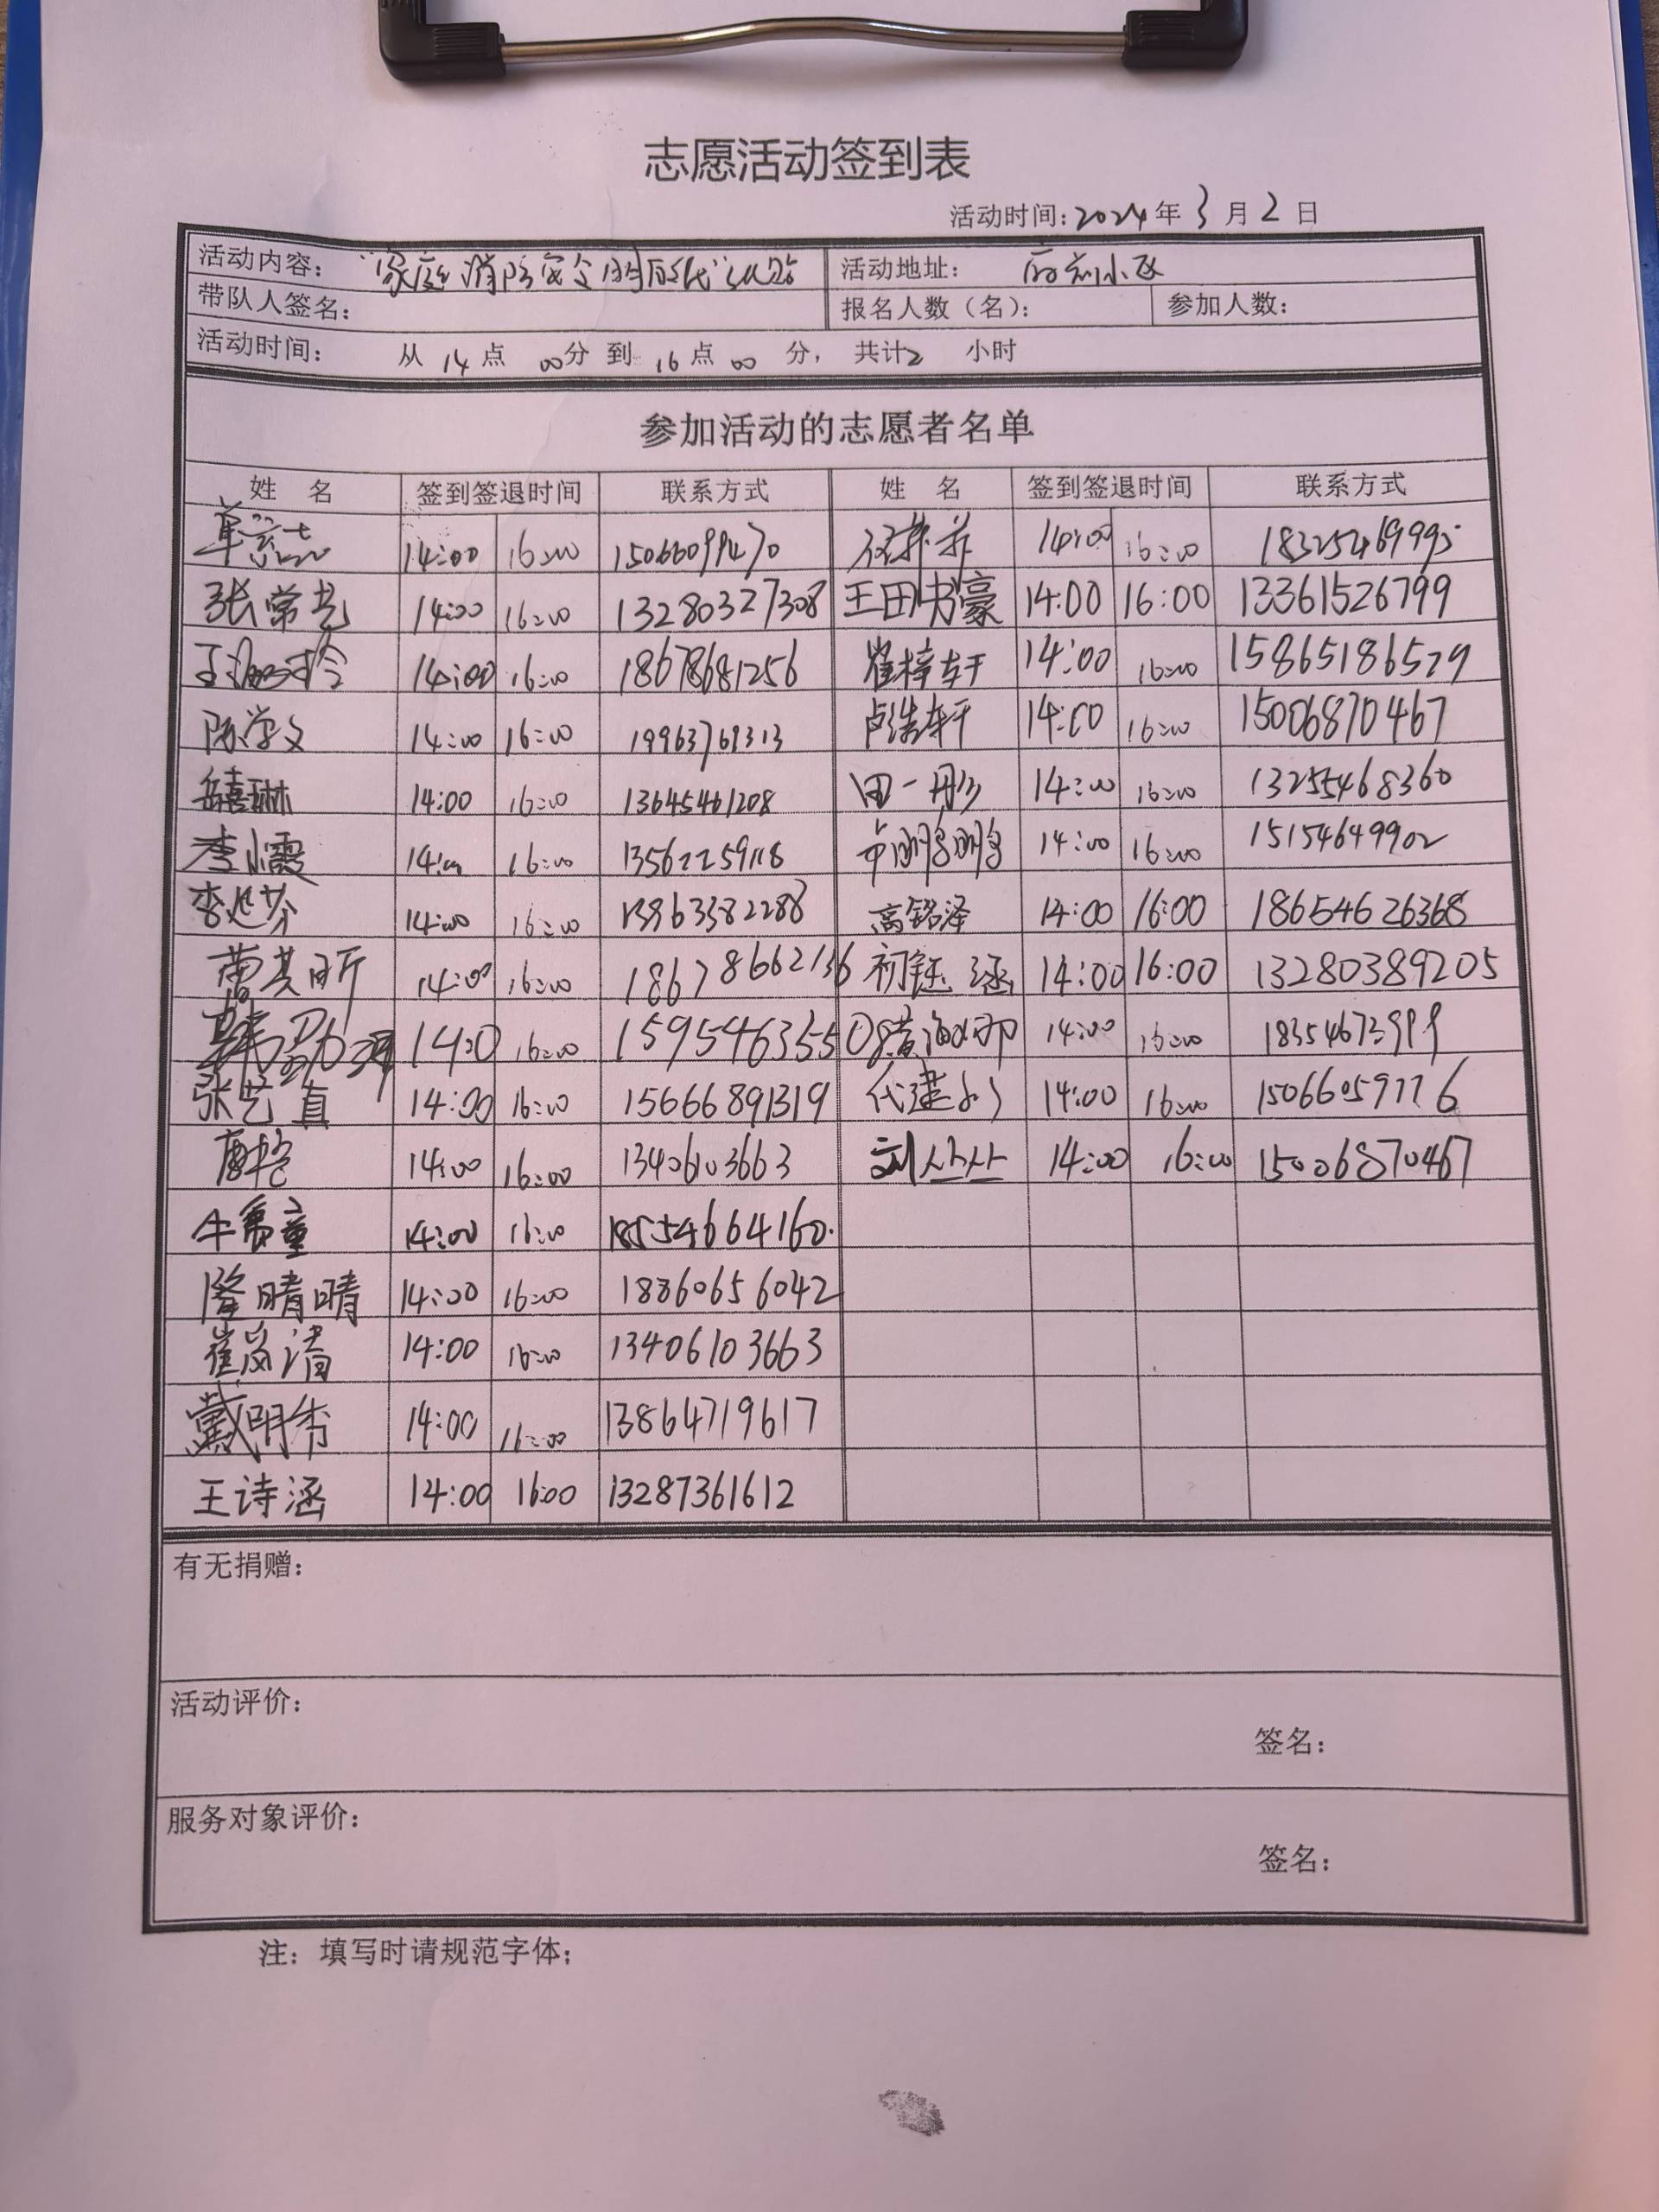 志愿活动签到表
活动时间：2024年3月2日
活动内容："家庭消防安全 活动地址： 府前小区
带队人签名： 报名人数（名）： 参加人数：
活动时间： 从 14 点 00分 到 16 点 00 分， 共计2 小时
参加活动的志愿者名单
姓 名 签到签退时间 联系方式 姓 名 签到签退时间 联系方式
14:00 16:00 15066099470 14:00 16:00 18325469995
张常光 14:00 16:00 13280327308 王田书豪 14:00 16:00 13361526799
14:00 16:00 18678681256 崔梓轩 14:00 16:00 15865186529
陈学文 14:00 16:00 19963769313 卢浩轩 14:00 16:00 15006870467
岳喜琳 14:00 16:00 13645461208 田一彤 14:00 16:00 13255468360
李小霞 14:00 16:00 13562259118 14:00 16:00 15154649902
李延芬 14:00 16:00 13963382288 高铭泽 14:00 16:00 18654626368
曹其昕 14:00 16:00 18678662136 初钰涵 14:00 16:00 13280389205
14:0 16:00 14:00 16:00 18354673999
张艺真 14:00 16:00 15666891319 14:00 16:00 15066059776
14:00 16:00 13406103663 刘丛丛 14:00 16:00 15006870467
牛禹童 14:00 16:00 18554664160
隆晴晴 14:00 16:00 18360656042
崔岚清 14:00 16:00 13406103663
戴明秀 14:00 16:00 13864719617
王诗涵 14:00 16:00 13287361612
有无捐赠：
活动评价：
签名：
服务对象评价：
签名：
注：填写时请规范字体；